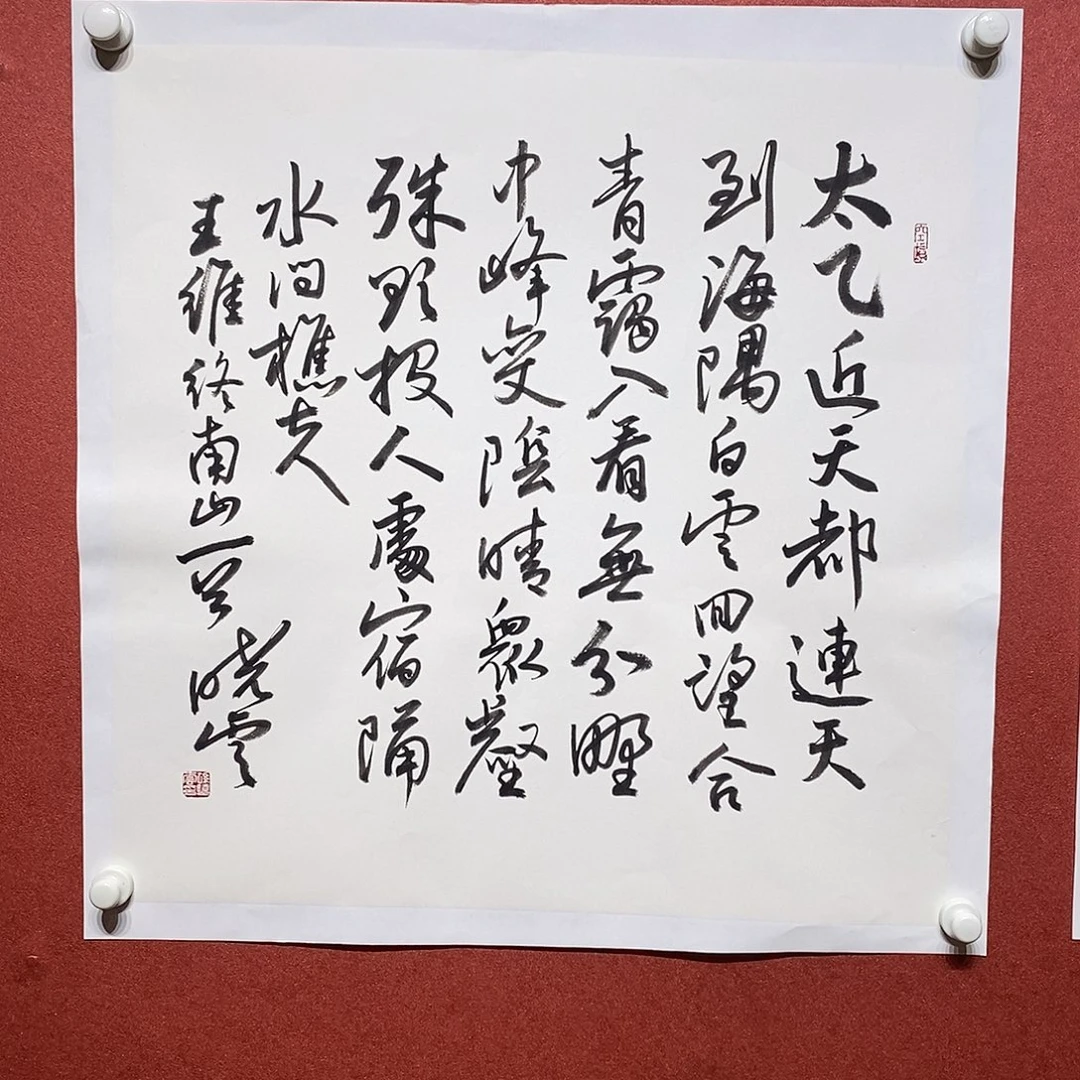 太乙近天都連天
到海隅白雲回望合
青靄入看無分野
中峰變陰晴衆壑
殊欲投人處宿隔
水問樵夫
王維終南山一首 曉雲